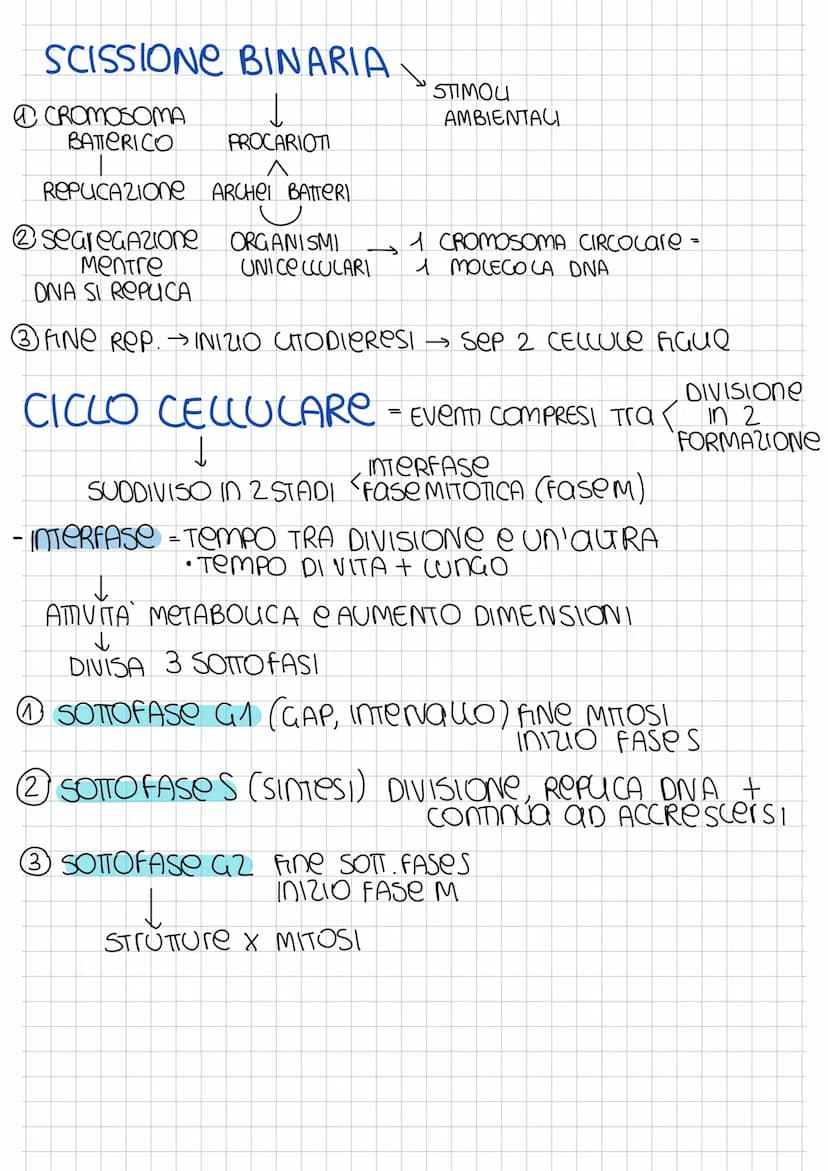 SCISSIONE BINARIA
STIMOLI
AMBIENTALI
① CROMOSOMA
BATTERICO
PROCARIOTI
REPLICAZIONE
ARCHEI BATTERI
② SEGREGAZIONE
MENTRE
DNA SI REPLICA
ORGANISMI
UNICELLULARI
→ 1 CROMOSOMA CIRCOLARE =
1 MOLECOLA DNA
③ FINE REP. → INIZIO CITODIERESI → SEP 2 CELLULE FIGLIE
CICLO CELLULARE = EVENTI COMPRESI TRA <
DIVISIONE
IN 2
FORMAZIONE
↓
SUDDIVISO IN 2 STADI <
INTERFASE
FASE MITOTICA (FASE M)
- INTERFASE = TEMPO TRA DIVISIONE E UN'ALTRA
• TEMPO DI VITA + LUNGO
↓
ATTIVITA' METABOLICA E AUMENTO DIMENSIONI
↓
DIVISA 3 SOTTOFASI
① SOTTOFASE G1 (GAP, INTERVALLO) FINE MITOSI
INIZIO FASE S
② SOTTOFASE S (SINTESI) DIVISIONE, REPLICA DNA +
CONTINUA AD ACCRESCERSI
③ SOTTOFASE G2 FINE SOTT. FASE S
INIZIO FASE M
↓
STRUTTURE X MITOSI